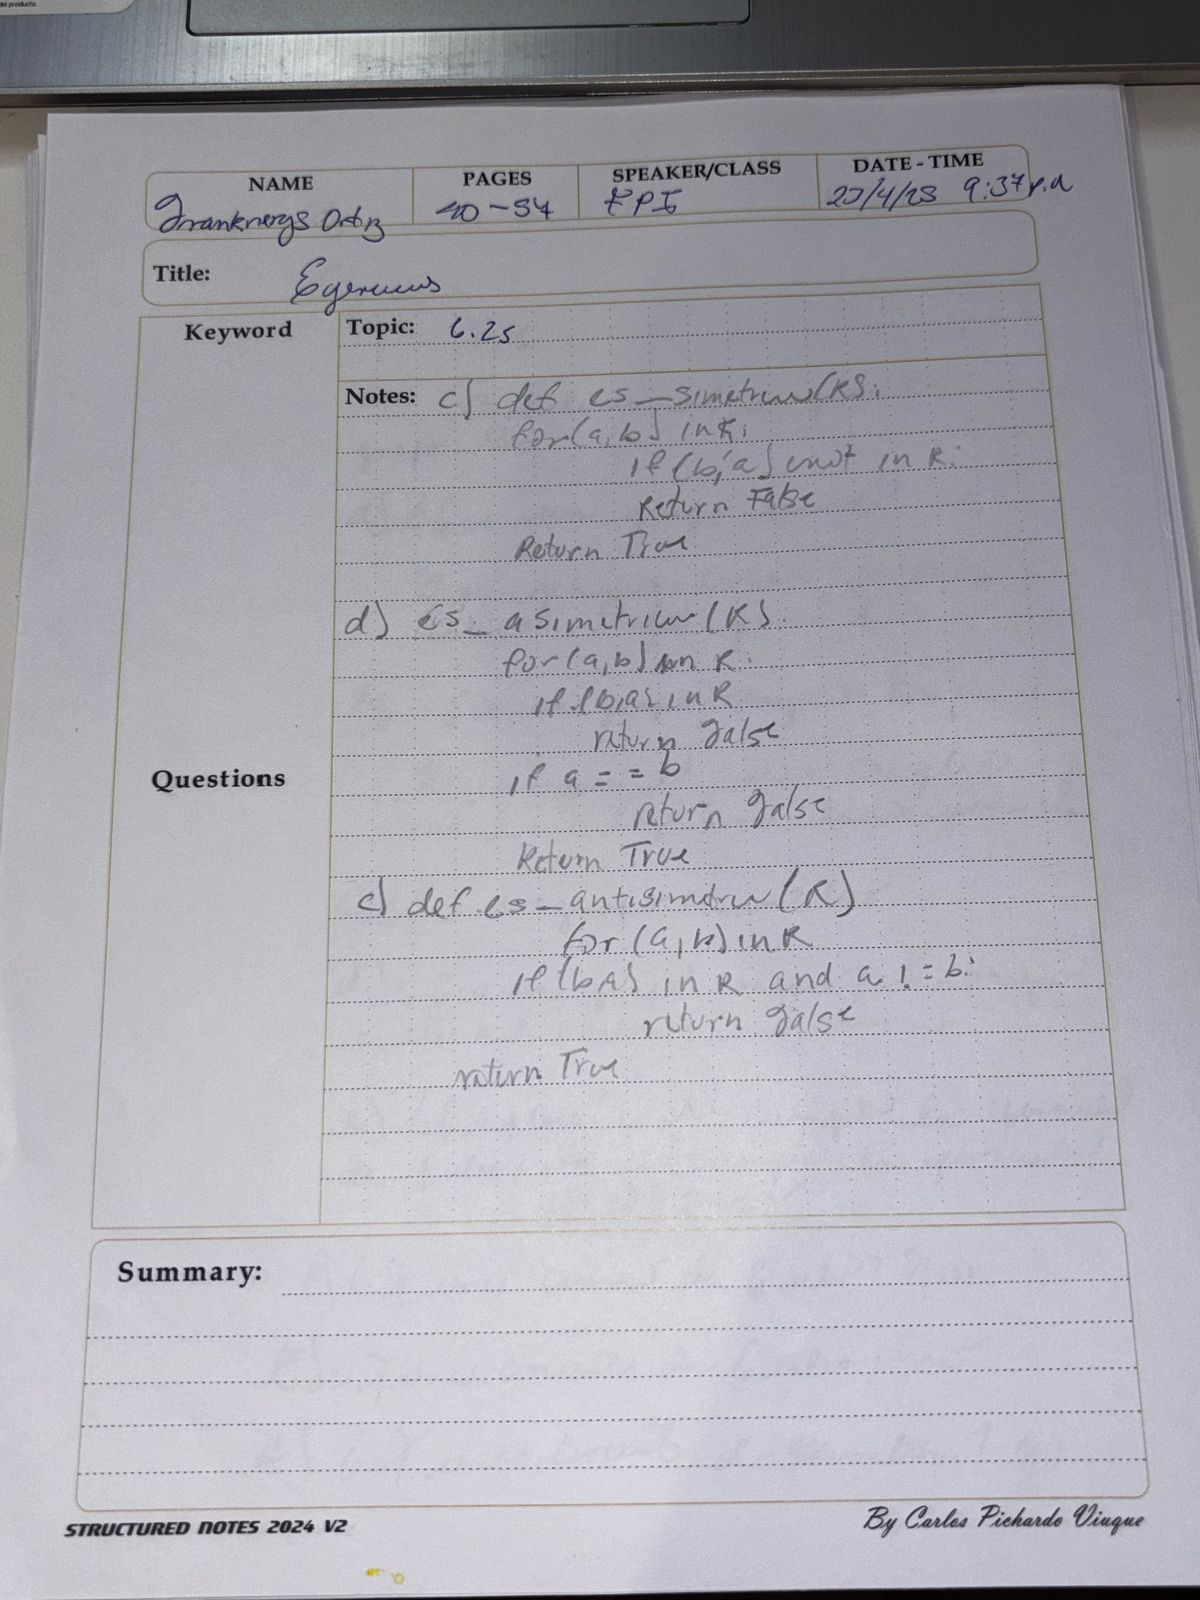 del producto.
NAME PAGES SPEAKER/CLASS DATE - TIME
Franknerys Ortiz 40-54 EPI 9:37 p.m
Title:
Keyword Topic: 6.25
Notes: c) def es_simetrica(R):
for(a,b) in R:
if (b,a) not in R:
Return False
Return True
d) es_asimetrica(R).
for(a,b) in R.
if (b,a) in R
return false
if a == b
Questions
return false
Return True
def es_antisimetrica(R)
for (a,b) in R
if (b,A) in R and a != b:
return false
return True
Summary:
STRUCTURED NOTES 2024 V2
By Carlos Pichardo Viuque